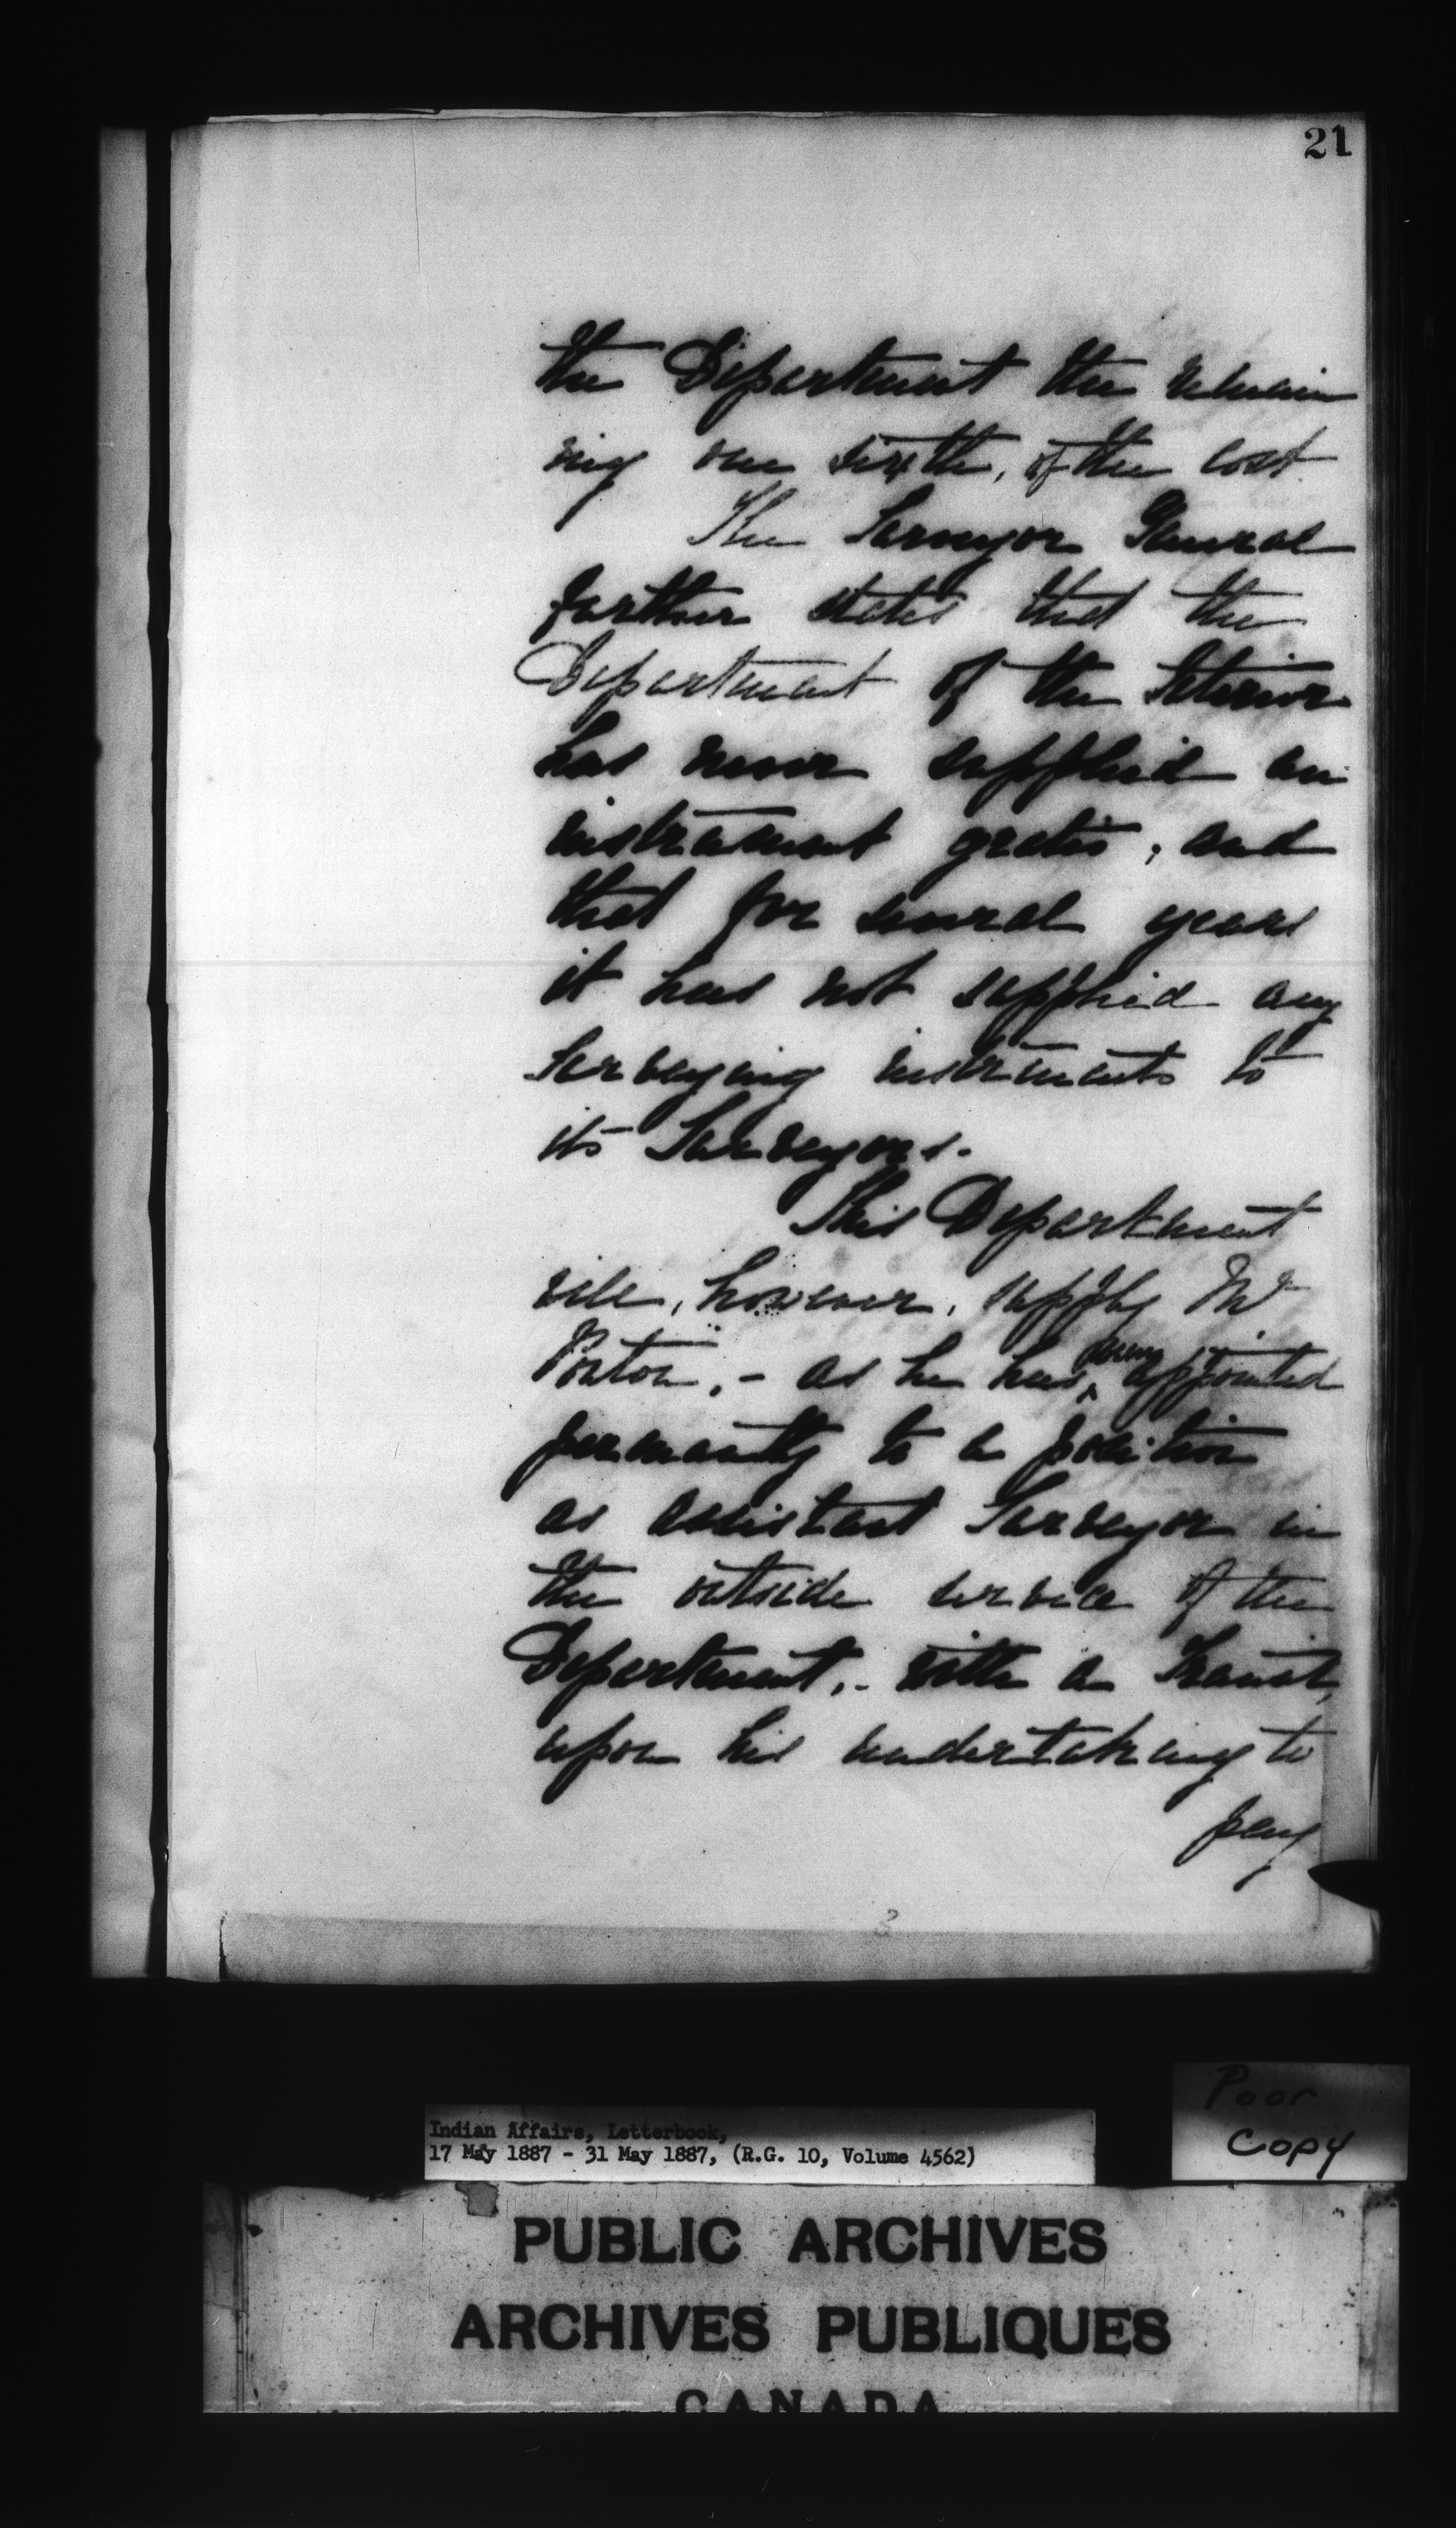 21
the Department the remain
ing one sixth, of the cost.
The Surveyor General
further states that the
Department of the Interior
has never supplied an
instrument gratis; and
that for several years
it has not supplied any
Surveying instruments to
its Surveyors.
This Department
will, however, supply Mr
Ponton, - as he has been appointed
permanently to a position
as assistant Surveyor in
the outside service of the
Department, - with a Transit,
upon his undertaking to
pay
2
Poor
Copy
Indian Affairs, Letterbook,
17 May 1887 - 31 May 1887, (R.G. 10, Volume 4562)
PUBLIC ARCHIVES
ARCHIVES PUBLIQUES
CANADA